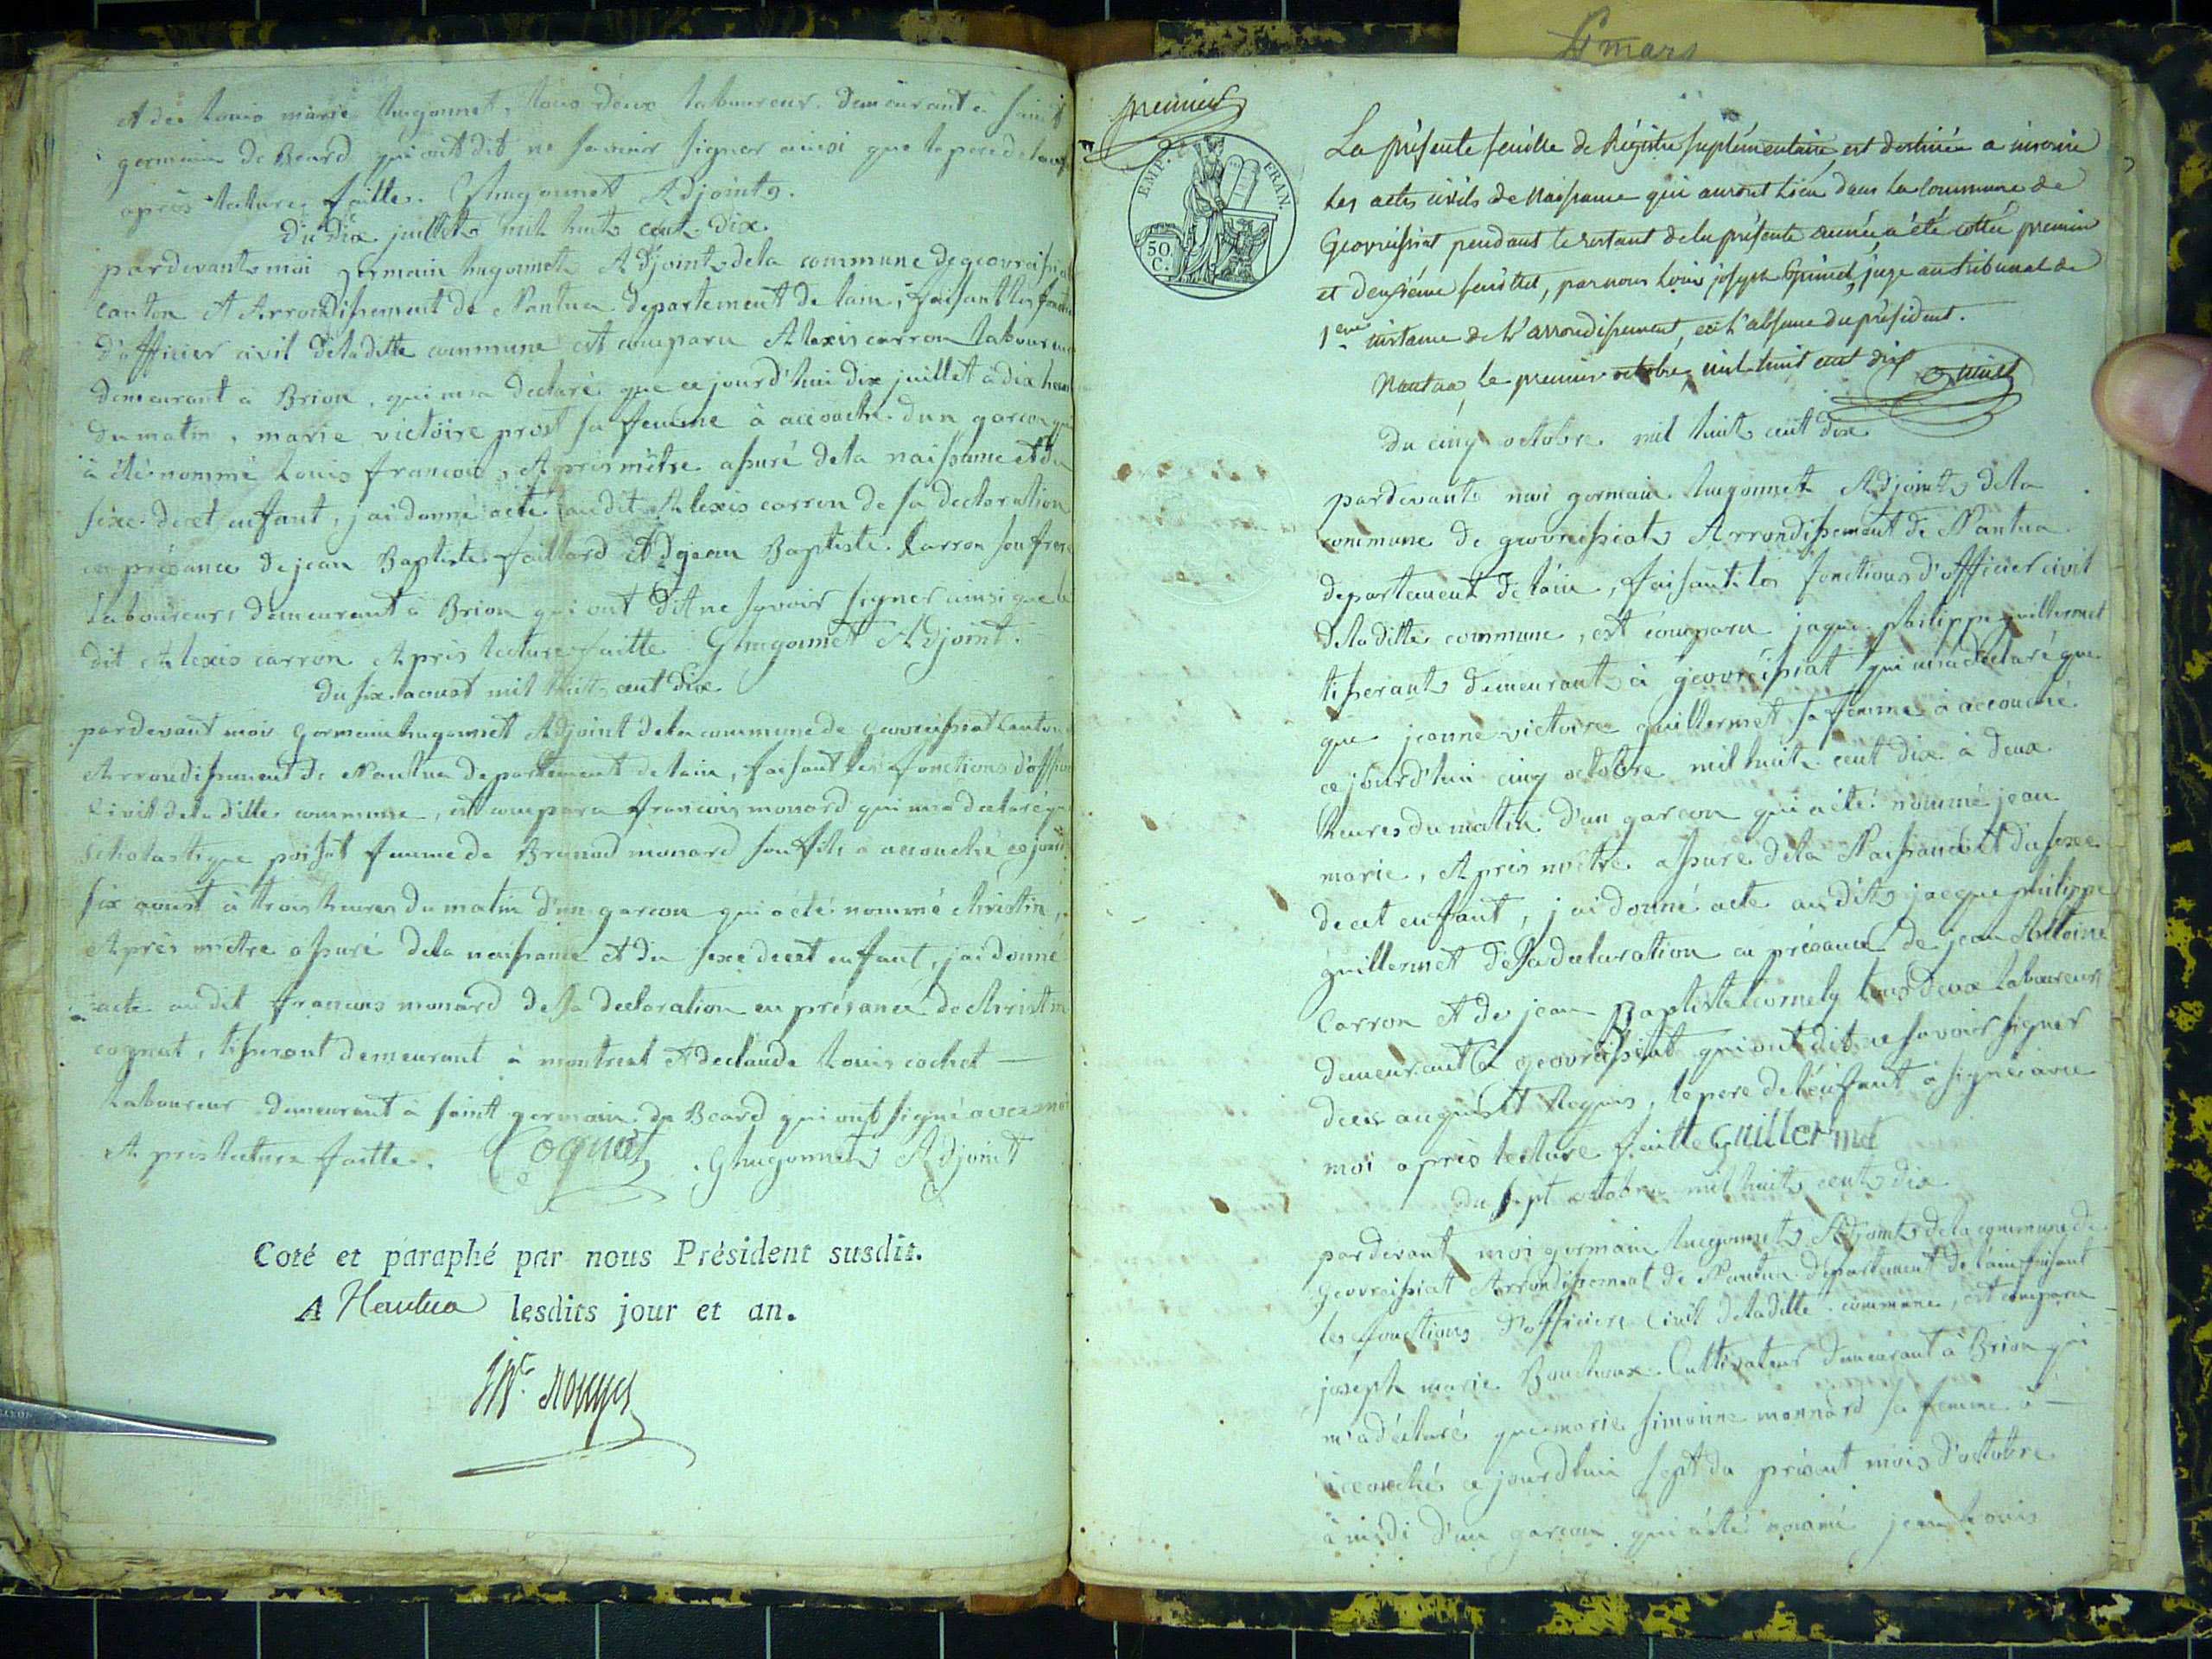 et de Louis marie hugonnet, tous deux laboureur demeurant à saint
germain de Beard qui ont dit ne savoir signer ainsi que le pere de
après lecture faitte. Ghugonnet Adjoint
du dix juillet mil huit cent dix
pardevant moi germain hugonnet Adjoint dela commune de geovreissiat
canton et Arrondissement de Nantua departement de lain, faisant les
d'officier civil dela ditte commune est comparu Alexis carron laboureur
demeurant a Brion, qui ma declaré que ce jourd'hui dix juillet à dix heures
du matin, marie victoire prost sa femme à accouché dun garcon qui
à été nommé Louis francois, Apris mêtre assuré dela naissance et du
sexe decet enfant, jai donné acte audit Alexis carron de sa declaration
en présance de jean Baptiste faillard et de jean Baptiste Carron son frere
laboureurs demeurant à Brion qui ont dit ne savoir signer ainsi que le
dit Alexis carron Apris lecture faitte Ghugonnet Adjoint.
du six aoust mil huit cent dix
pardevant moi germain hugonnet Adjoint dela commune de geovreissiat canton
Arrondissement de Nantua departement de lain, faisant les fonctions d'officier
civil dela ditte commune, est comparu francois monard qui ma declaré que
scholastique poisat femme de Brunod monard son fils à accouché ce
six aoust à trois heures du matin d'un garcon qui a été nommé christin,
Aprés mêtre assuré dela naissance et du sexe decet enfant, jai donné
acte audit francois monard de sa declaration en présance de christin
cognat, tisserant demeurant à montreal et de claude Louis cochet —
laboureur demeurant à saint germain de Beard qui ont signé avec moi
Apris lecture faitte. Cognat Ghugonnet Adjoint
Coté et paraphé par nous Président susdit.
A Nantua lesdits jour et an.
4 mars
premier
EMP. FRAN.
50
C.
La présente feuille de Régistre suplémentaire est destinée a inscrire
les actes civils de Naissance qui auront lieu dans la Commune de
Geovreissiat pendant le restant dela présente année a été cottée premier
et deuxième feuillet, par nous Louis joseph juge au tribunal de
1ere instance de l'arrondissement, en l'absence du président.
Nantua, le premier octobre mil huit cent dix
du cinq octobre mil huit cent dix
pardevant moi germain hugonnet Adjoint dela
commune de geovreissiat Arrondissement de Nantua
departement de lain, faisant les fonctions d'officier civil
dela ditte commune, est comparu jaque philippe guillermet
tisserant demeurant à geovreissiat qui ma declaré que
que jeanne victoire guillermet sa femme à accouché
ce jourd'hui cinq octobre mil huit cent dix à deux
heures du matin d'un garcon qui a été nommé jean
marie, Apris mêtre assuré dela Naissance et du sexe
decet enfant, jai donné acte audit jacque philippe
guillermet de sa declaration en présance de jean Antoine
Carron et de jean Baptiste cornely tous deux laboureurs
demeurant à geovreissiat qui ont dit ne savoir signer
deeis anquist Requis, le pere de l'enfant à signé avec
moi après lecture faitte Guillermet
du sept octobre mil huit cent dix
pardevant moi germain hugonnet Adjoint dela commune de
geovreissiat Arrondissement de Nantua departement de lain faisant
les fonctions d'officiers Civil dela ditte commune, est comparu
joseph marie Bouchoux Cultivateur demeurant à Brion qui
m'a déclaré que marie simonne monnard sa femme à —
accouché ce jourdhui sept du présent mois d'octobre
à midi d'un garcon qui à été nommé jean Louis